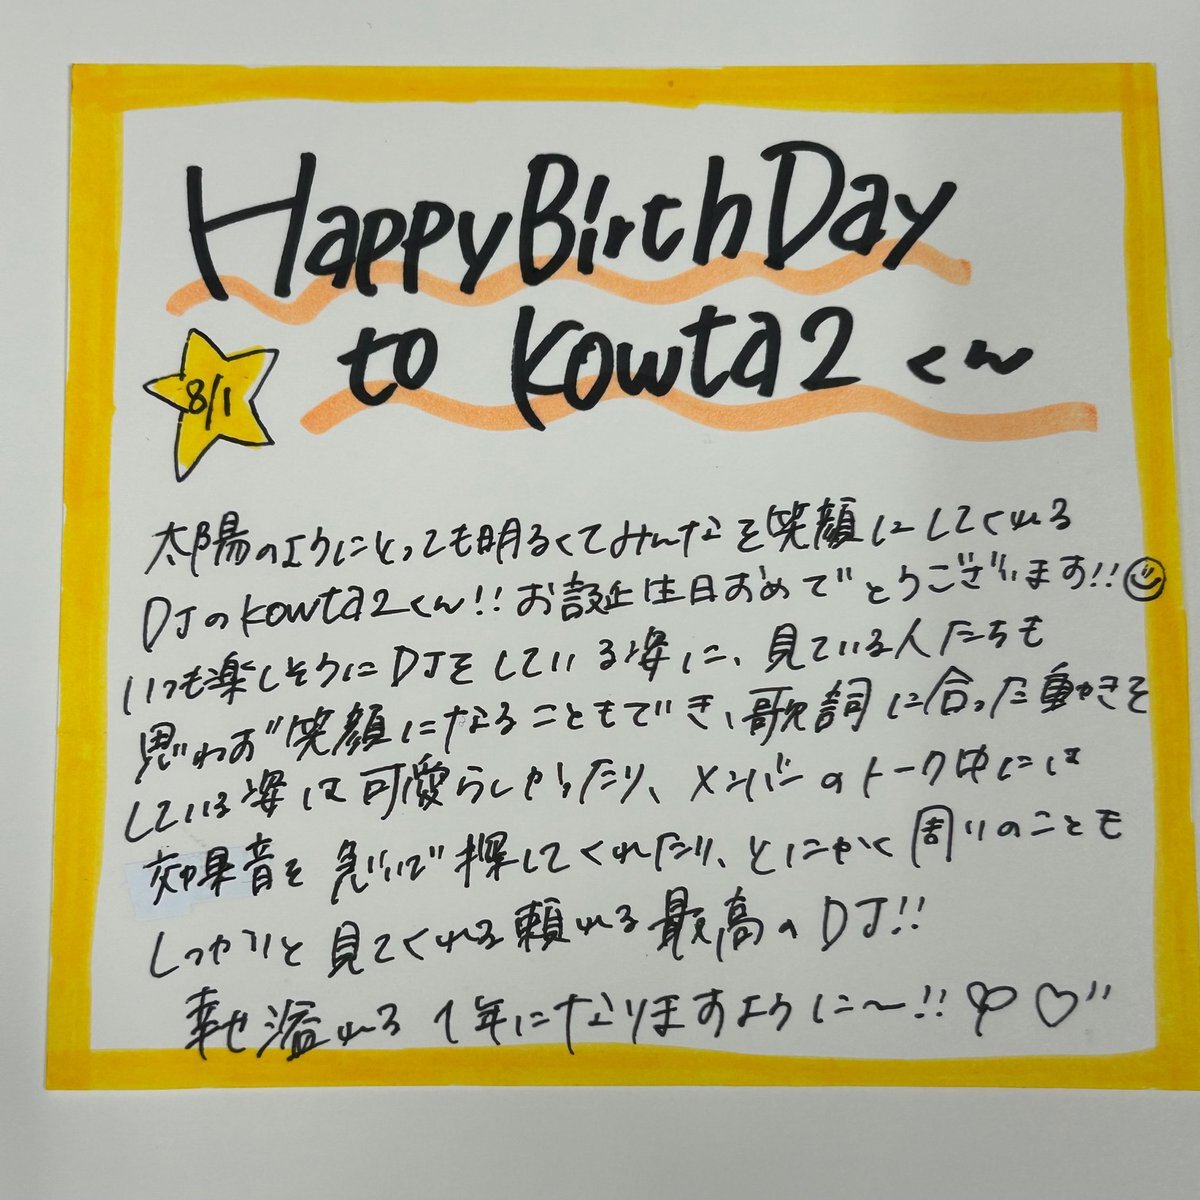 Happy BirthDay
to Kowta2くん
8/1
太陽のようにとっても明るくてみんなを笑顔にしてくれる
DJのKowta2くん!!お誕生日おめでとうございます!!
いつも楽しそうにDJをしている姿に、見ている人たちも
思わず笑顔になることもでき、歌詞に合った動きを
している姿は可愛らしかったり、メンバーのトーク中には
効果音を急いで探してくれたり、とにかく周りのことも
しっかりと見てくれる頼れる最高のDJ!!
幸せ溢れる1年になりますように〜!!♡"